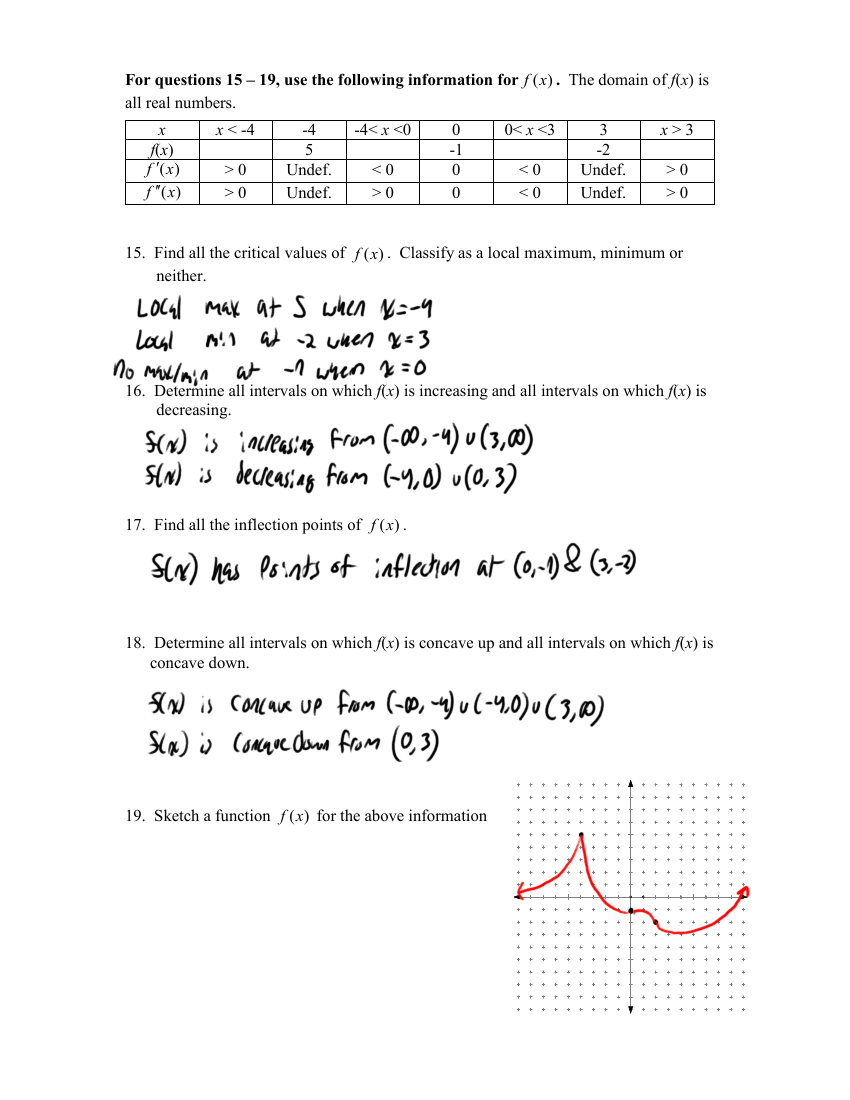 For questions 15 – 19, use the following information for f (x). The domain of f(x) is
all real numbers.
x x < -4 -4 -4< x <0 0 0< x <3 3 x > 3
f(x) 5 -1 -2
f ′(x) > 0 Undef. < 0 0 < 0 Undef. > 0
f ″(x) > 0 Undef. > 0 0 < 0 Undef. > 0
15. Find all the critical values of f (x). Classify as a local maximum, minimum or
neither.
Local max at 5 when x=-4
local min at -2 when x=3
no max/min at -1 when x=0
16. Determine all intervals on which f(x) is increasing and all intervals on which f(x) is
decreasing.
f(x) is increasing from (-∞,-4) ∪ (3,∞)
f(x) is decreasing from (-4,0) ∪ (0,3)
17. Find all the inflection points of f (x).
f(x) has points of inflection at (0,-1) & (3,-2)
18. Determine all intervals on which f(x) is concave up and all intervals on which f(x) is
concave down.
f(x) is concave up from (-∞,-4) ∪ (-4,0) ∪ (3,∞)
f(x) is concave down from (0,3)
19. Sketch a function f (x) for the above information